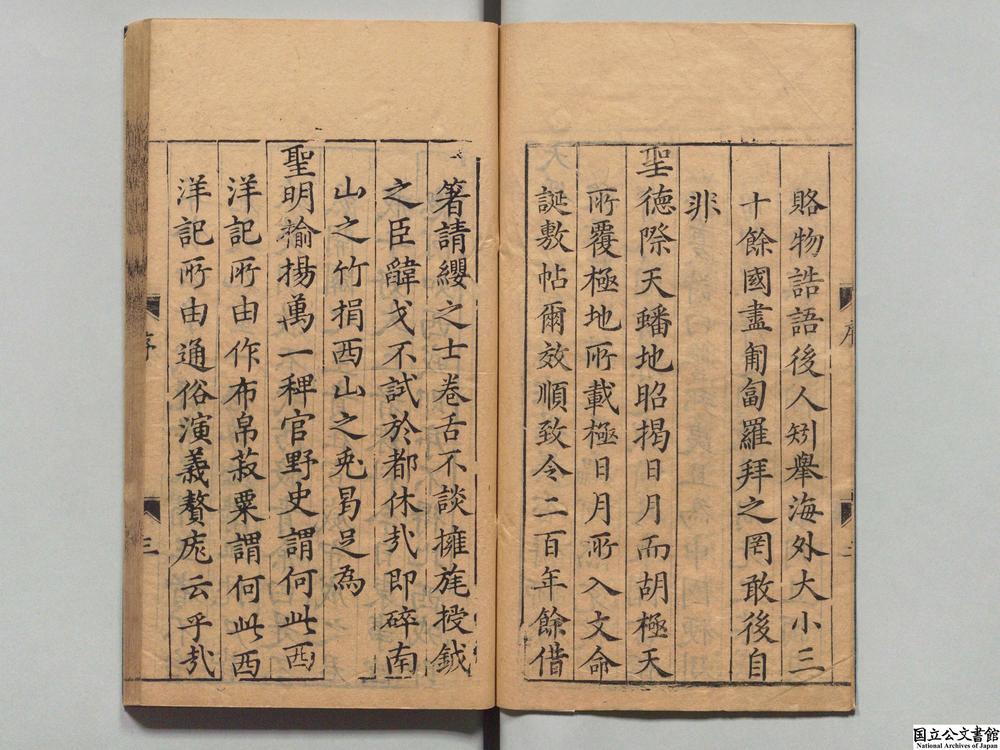 賂物誥語後人矧舉海外大小三
十餘國盡匍匐羅拜之罔敢後自
非
聖德際天蟠地昭揭日月而胡極天
所覆極地所載極日月所入文命
誕敷帖爾效順致令二百年餘借
箸請纓之士卷舌不談擁旄授鉞
之臣韡戈不試於都休哉即碎南
山之竹捐西山之兎曷足為
聖明揄揚萬一稗官野史謂何此西
洋記所由作布帛菽粟謂何此西
洋記所由通俗演義贅庬云乎哉
序
三
国立公文書館
National Archives of Japan